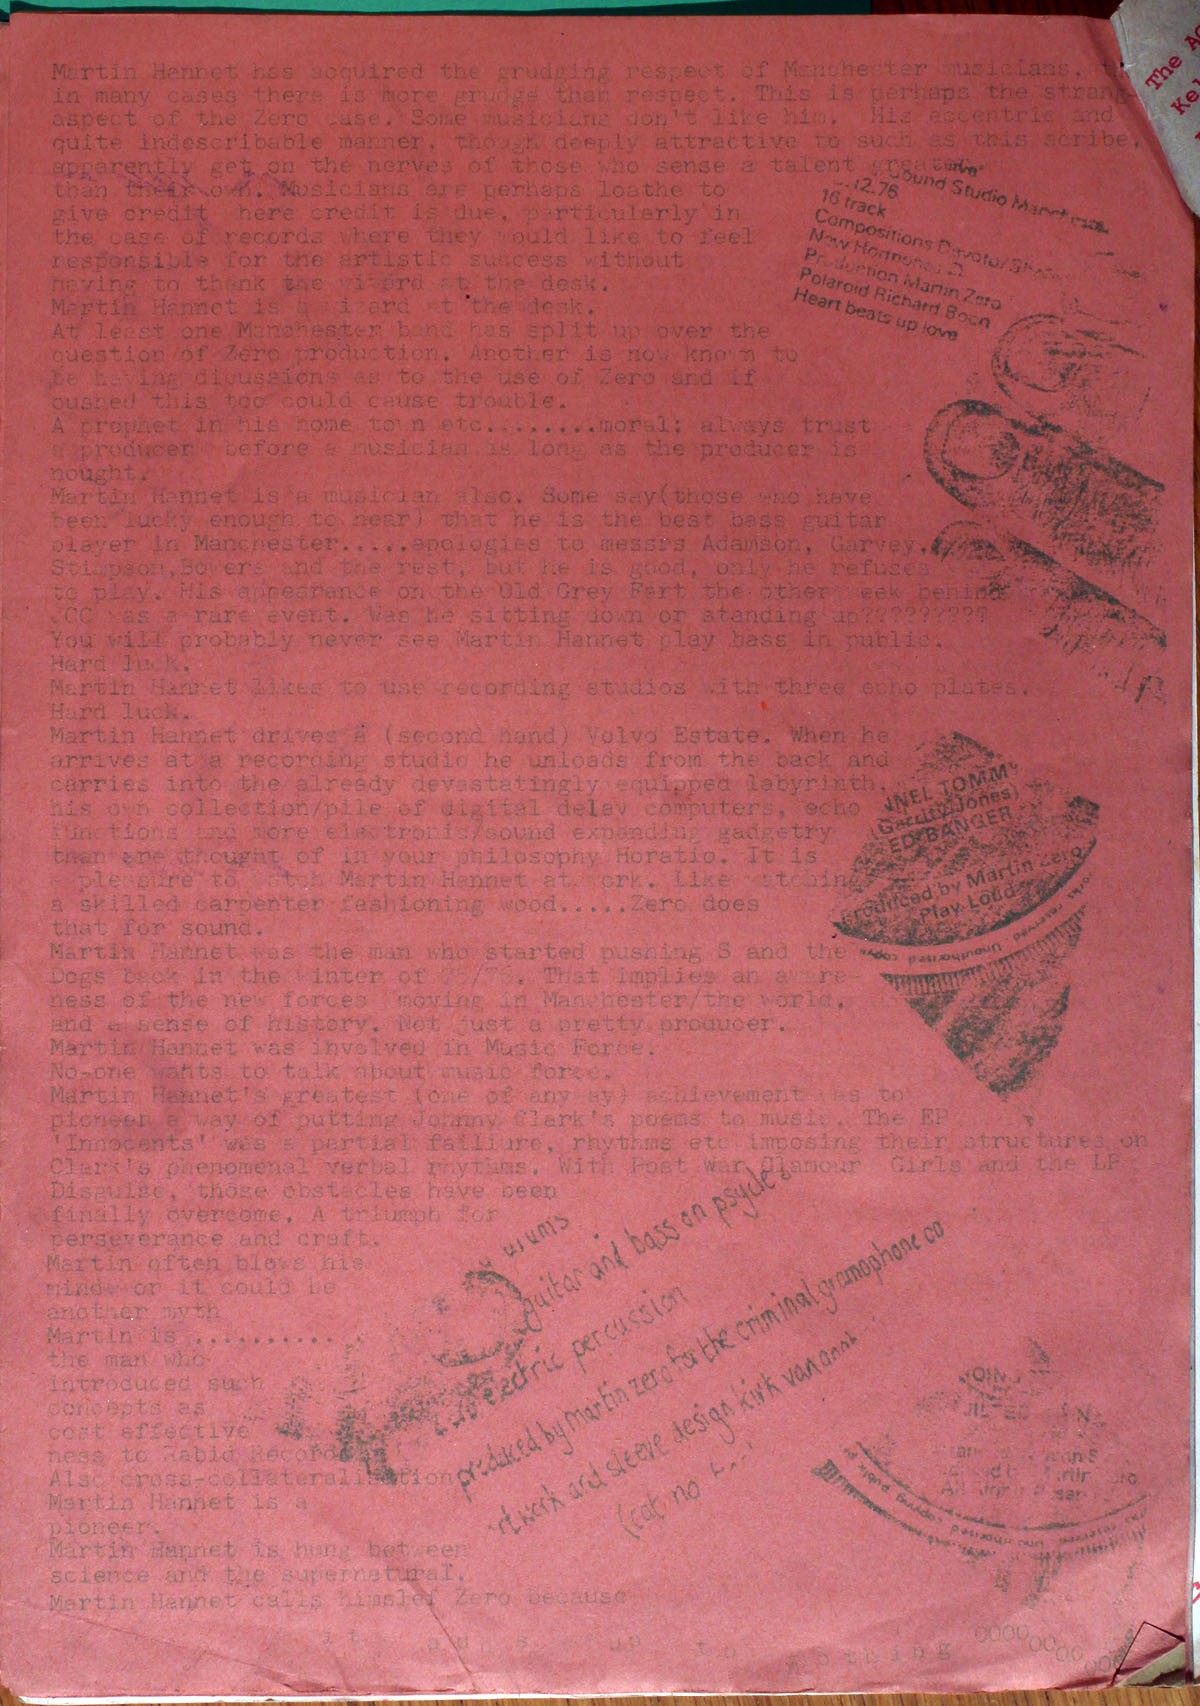 Martin Hannet has acquired the grudging respect of Manchester musicians,
in many cases there is more grudge than respect. This is perhaps the strang
aspect of the Zero case. Some musicians don't like him. His eccentric and
quite indescribable manner, though deeply attractive to such as this scribe,
apparently get on the nerves of those who sense a talent greater
than their own. Musicians are perhaps loathe to
give credit here credit is due, particularly in
the case of records where they would like to feel
responsible for the artistic success without
having to thank the wizard at the desk.
Martin Hannet is a wizard at the desk.
At least one Manchester band has split up over the
question of Zero production. Another is now known to
be having dicussions as to the use of Zero and if
pushed this too could cause trouble.
A prophet in his home town etc.........moral: always trust
a producer before a musician as long as the producer is
nought.
Martin Hannet is a musician also. Some say(those who have
been lucky enough to hear) that he is the best bass guitar
player in Manchester.....apologies to messrs Adamson, Garvey,
Stimpson,Bowers and the rest, but he is good, only he refuses
to play. His appearance on the Old Grey Fart the other week behind
JCC was a rare event. Was he sitting down or standing up?????????
You will probably never see Martin Hannet play bass in public.
Hard luck.
Martin Hannet likes to use recording studios with three echo plates.
Hard luck.
Martin Hannet drives a (second hand) Volvo Estate. When he
arrives at a recording studio he unloads from the back and
carries into the already devastatingly equipped labyrinth,
his own collection/pile of digital delay computers, echo
functions and more electronic/sound expanding gadgetry
than are thought of in your philosophy Horatio. It is
a pleasure to watch Martin Hannet at work. Like watching
a skilled carpenter fashioning wood.....Zero does
that for sound.
Martin Hannet was the man who started pushing S and the
Dogs back in the winter of That implies an aware-
ness of the new forces moving in Manchester/the world,
and a sense of history. Not just a pretty producer.
Martin Hannet was involved in Music Force.
No-one wants to talk about music force.
Martin Hannet's greatest (one of anyway) achievement was to
pioneer a way of putting Johnny Clark's poems to music. The EP
'Innocents' was a partial failiure, rhythms etc imposing their structures on
Clark's phenomenal verbal rhythms. With Post War Glamour Girls and the LP
Disguise, those obstacles have been
finally overcome. A triumph for
perseverance and craft.
Martin often blows his
mind or it could be
another myth
Martin is ...........
the man who
introduced such
concepts as
cost effective
ness to Rabid Records
Also cross-collateralisation
Martin Hannet is a
pioneer.
Martin Hannet is hung between
science and the supernatural.
Martin Hannet calls himslef Zero because
it adds up to nothing
Sound Studio Manchester
12.76
16 track
Compositions Devoto/
New Hormones
Production Martin Zero
Polaroid Richard Boon
Heart beats up love
NNEL TOMMY
(Garrity/Jones)
ED BANGER
Produced by Martin Zero
Play Loud
drums
guitar and bass on psycle
electric percussion
produced by martin zero for the criminal gramophone co
rtwork and sleeve design kirk van
(cat no
The
Ke